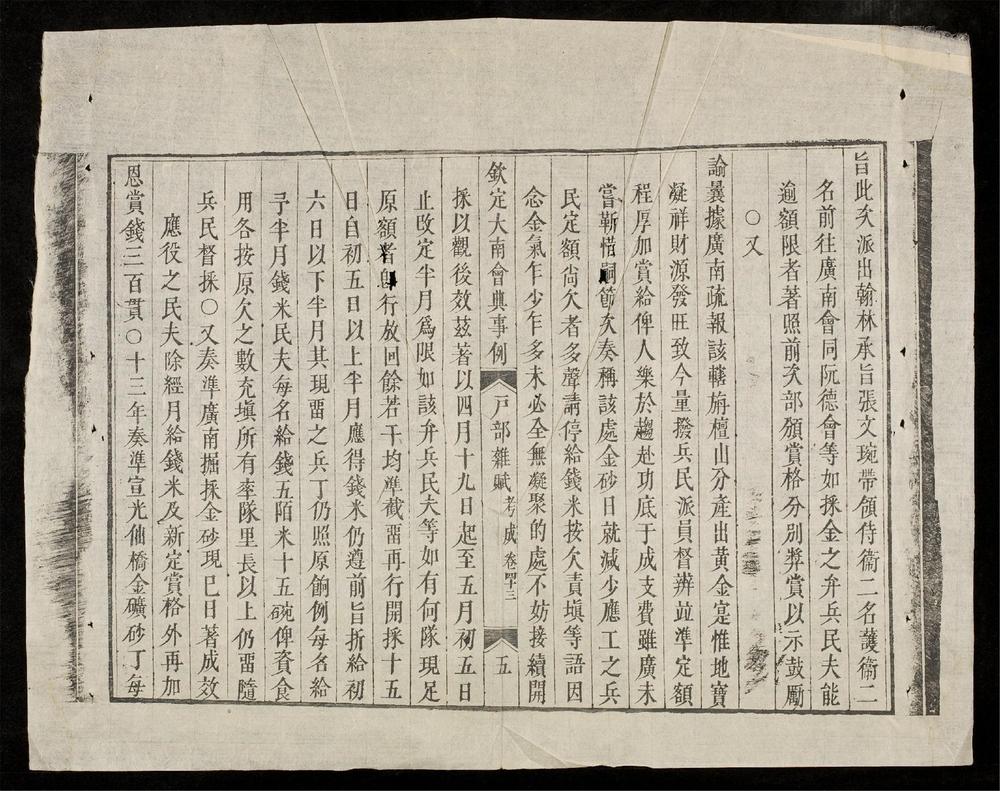 旨此次派出翰林承旨張文琬帶領侍衞二名護衞二
名前往廣南會同阮德會等如採金之弁兵民夫能
逾額限者著照前次部頒賞格分別獎賞以示鼓勵
○又
諭曩據廣南疏報該轄旃檀山分產出黃金寔惟地寶
凝祥財源發旺致今量撥兵民派員督辦並準定額
程厚加賞給俾人樂於趨赴功底于成支費雖廣未
嘗靳惜嗣節次奏稱該處金砂日就減少應工之兵
民定額尙欠者多聲請停給錢米按欠責塡等語因
念金氣乍少乍多未必全無凝聚的處不妨接續開
欽定大南會典事例 戸部雜賦 考成 卷四十三 五
採以觀後效茲著以四月十九日起至五月初五日
止改定半月爲限如該弁兵民夫等如有何隊現足
原額者卽行放回餘若干均準截畱再行開採十五
日自初五日以上半月應得錢米仍遵前旨折給初
六日以下半月其現畱之兵丁仍照原餉例每名給
予半月錢米民夫每名給錢五陌米十五碗俾資食
用各按原欠之數充塡所有率隊里長以上仍畱隨
兵民督採○又奏準廣南掘採金砂現已日著成效
應役之民夫除經月給錢米及新定賞格外再加
恩賞錢三百貫○十三年奏準宣光仙橋金礦砂丁每